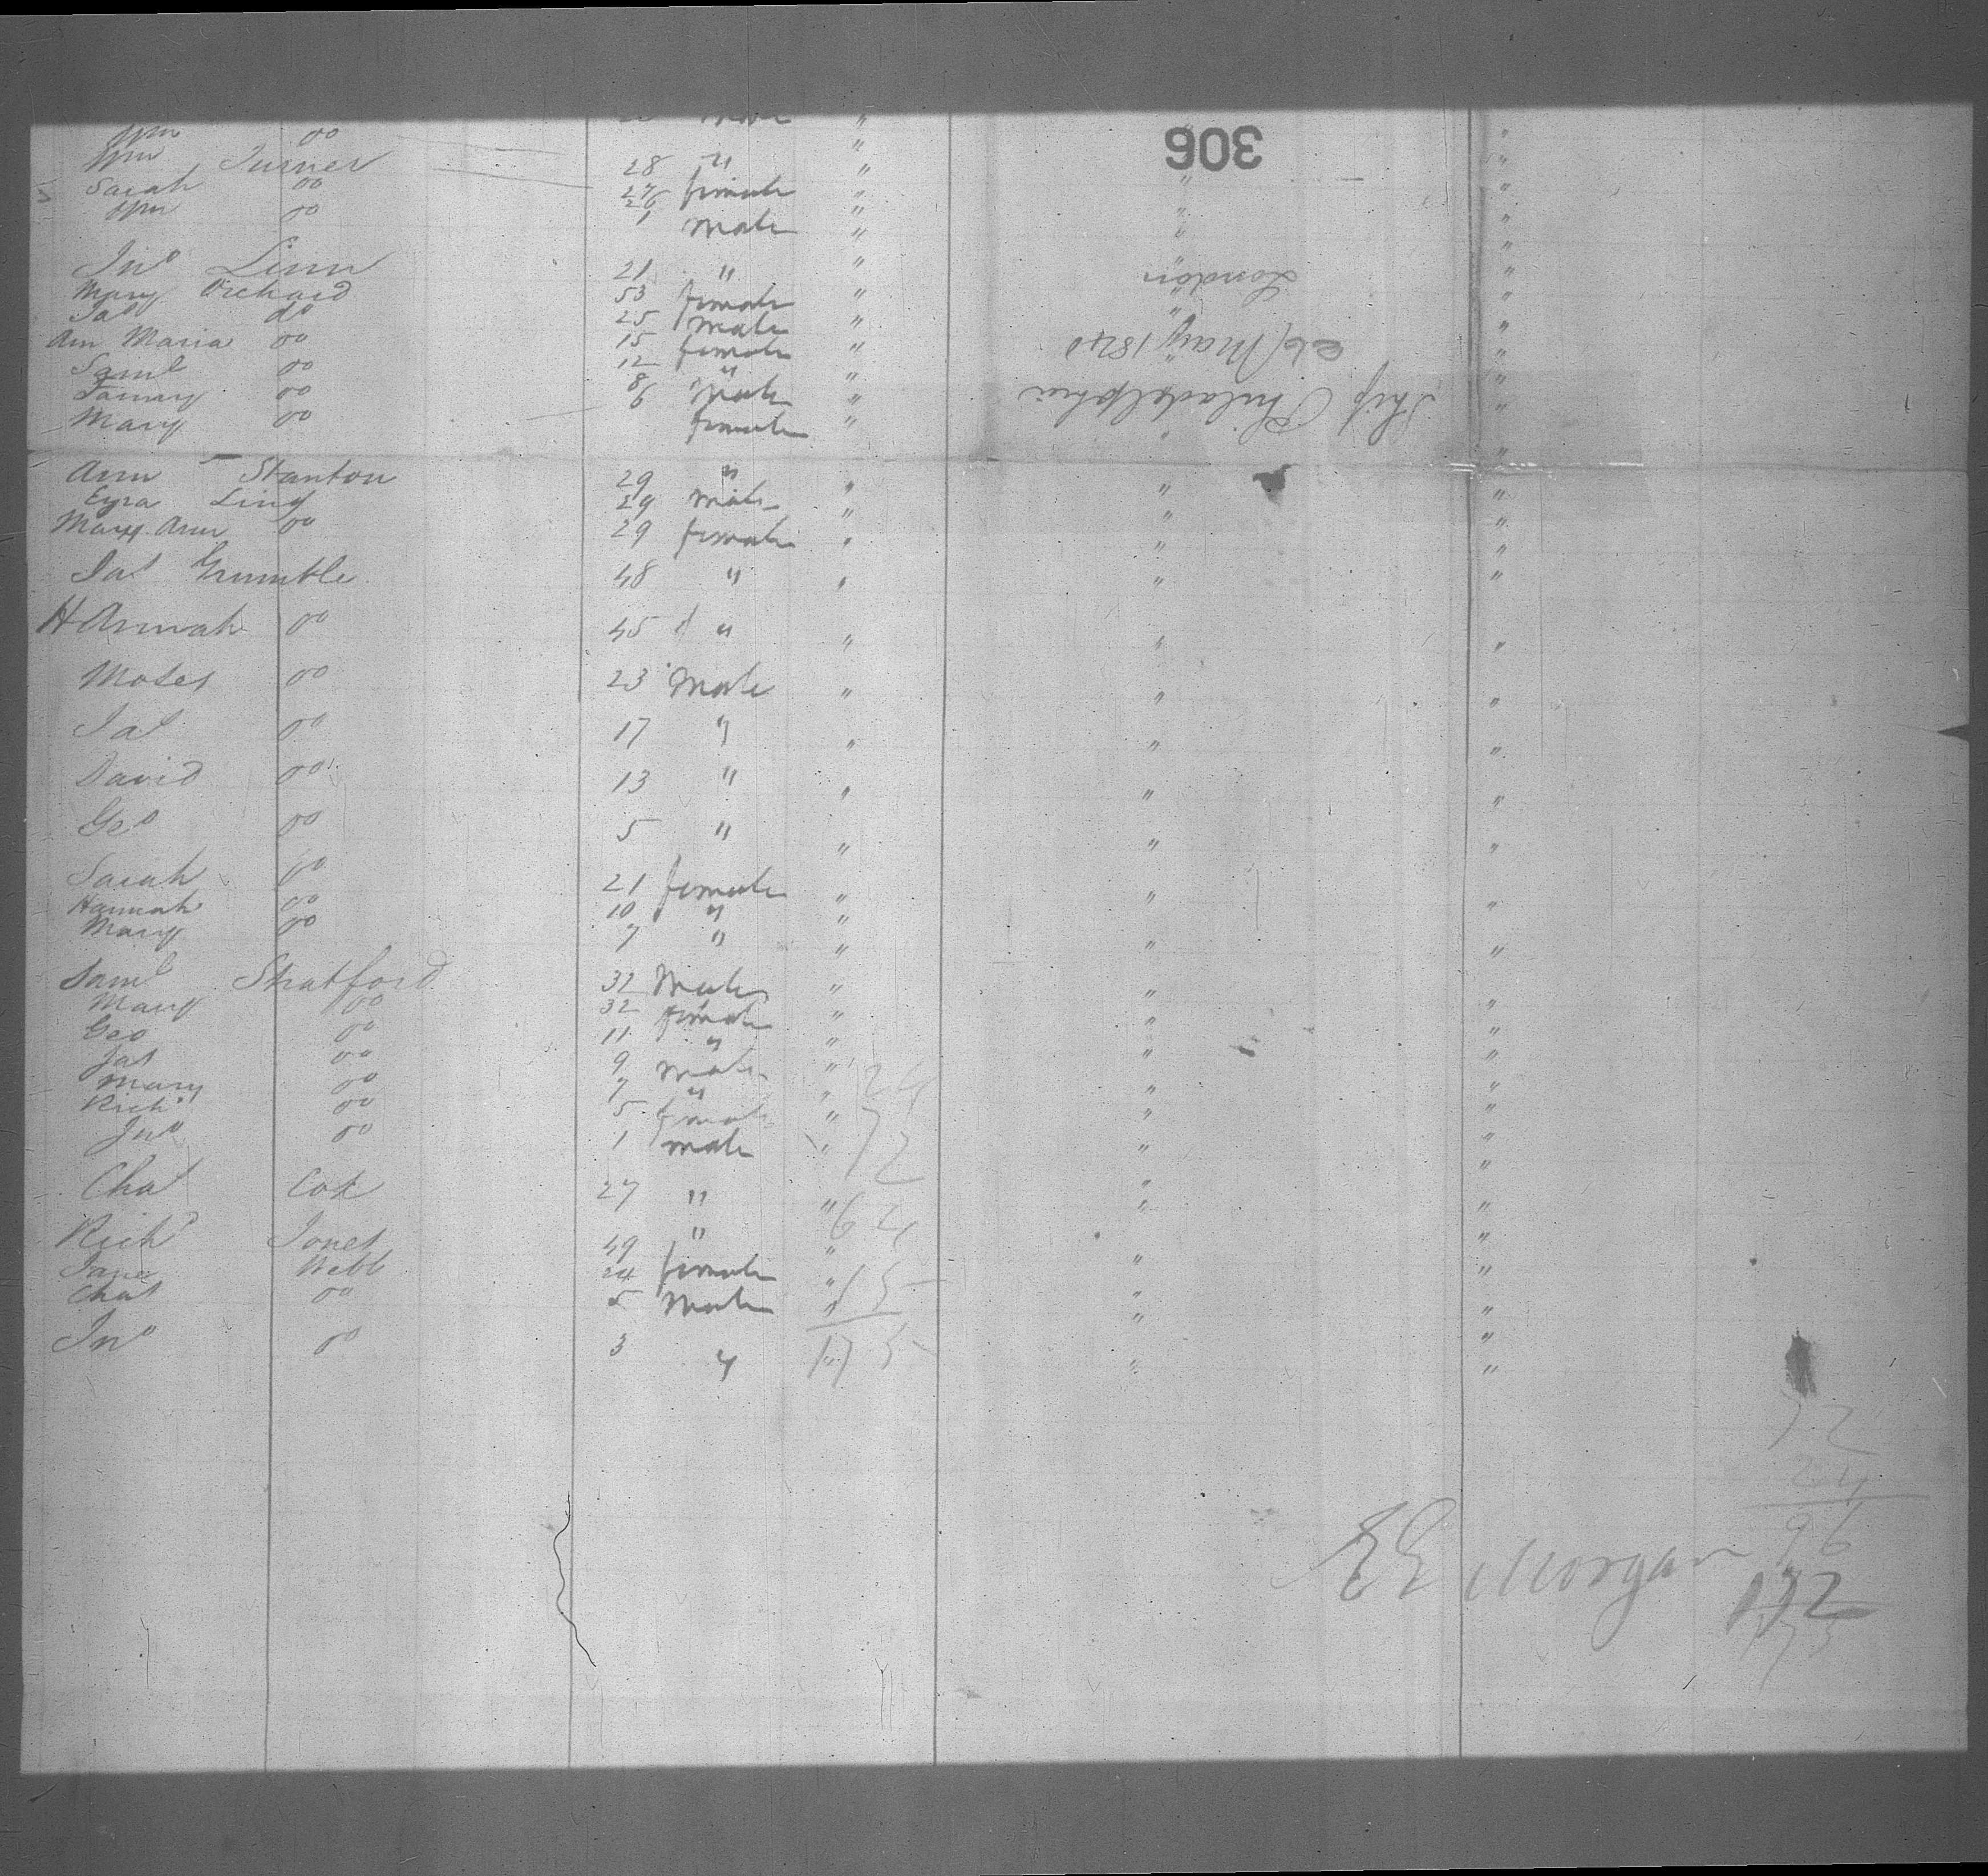 Wm do male "
Wm Turner 28 " "
Sarah do 27 female "
Wm do 1 male "
Jno Linn 21 " "
Mary Orchard 53 female "
Jas do 25 male "
Ann Maria do 15 female "
Saml do 12 " "
Fanny do 8 male "
Mary do 6 female "
Ann Stanton 29 " "
Ezra Ling 29 male "
Mary Ann do 29 female "
Jas Grumble 48 " "
Hannah do 45 " "
Moses do 23 Male "
Jas do 17 " "
David do 13 " "
Geo do 5 " "
Sarah do 21 female "
Hannah do 10 " "
Mary do 7 " "
Saml Stratford 32 Male "
Mary do 32 female "
Geo do 11 " "
Jas do 9 male "
Mary do 7 " "
Richd do 5 female "
Jno do 1 male "
Chas Cox 27 " "
Richd Jones 49 " "
Jane Webb 24 female "
Chas do 5 Male "
Jno do 3 " "
306
Ship Philadelphia
26 May 1840
London
24
72
64
15
175
72
24
96
E E Morgan